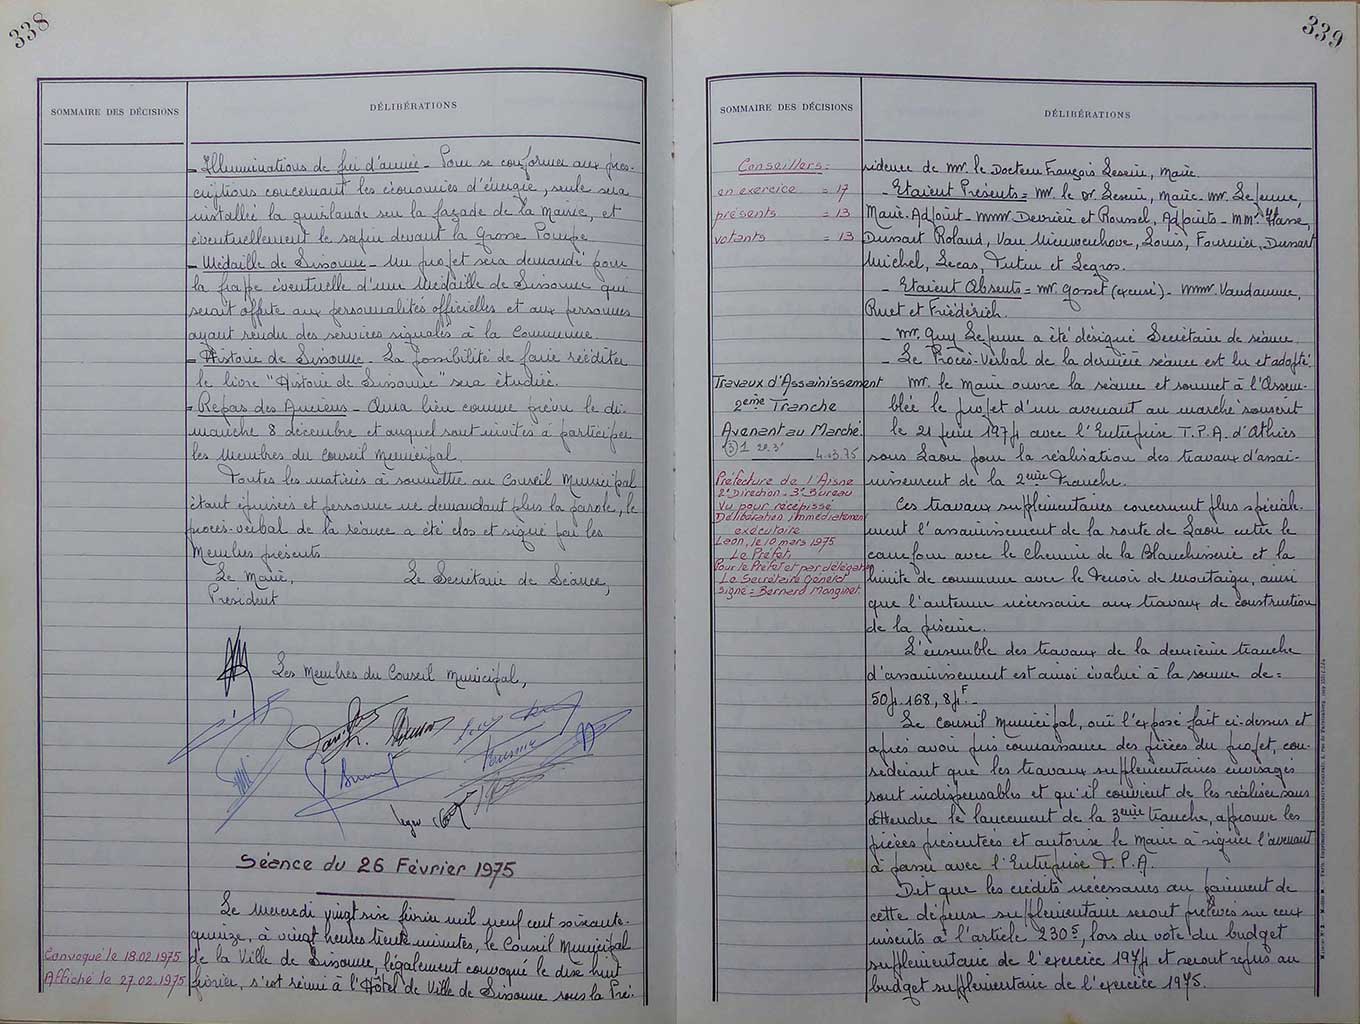 338
SOMMAIRE DES DÉCISIONS
DÉLIBÉRATIONS
- Illuminations de fin d'année - Pour se conformer aux pres-
criptions concernant les économies d'énergie, seule sera
installée la guirlande sur la façade de la Mairie, et
éventuellement le sapin devant la Grosse Pompe.
- Médaille de Sissonne - Un projet sera demandé pour
la frappe éventuelle d'une Médaille de Sissonne qui
serait offerte aux personnalités officielles et aux personnes
ayant rendu des services signalés à la Commune.
- Histoire de Sissonne - La possibilité de faire rééditer
le livre "Histoire de Sissonne" sera étudiée.
- Repas des Anciens - Aura lieu comme prévu le di-
manche 8 décembre et auquel sont invités à participer
les Membres du Conseil Municipal.
Toutes les matières à soumettre au Conseil Municipal
étant épuisées et personne ne demandant plus la parole, le
procès-verbal de la séance a été clos et signé par les
Membres présents
Le Maire,
Le Secrétaire de Séance,
Président
Les Membres du Conseil Municipal,
Séance du 26 Février 1975
Le Mercredi vingt six février mil neuf cent soixante-
quinze, à vingt heures trente minutes, le Conseil Municipal
Convoqué le 18.02.1975
de la Ville de Sissonne, légalement convoqué le dix huit
Affiché le 27.02.1975
février, s'est réuni à l'Hôtel de Ville de Sissonne sous la Pré-
339
SOMMAIRE DES DÉCISIONS
DÉLIBÉRATIONS
Conseillers:
en exercice = 17
présents = 13
votants = 13
sidence de Mr. le Docteur François Leseur, Maire.
- Etaient Présents = Mr. le Dr Leseur, Maire - Mr. Lejeune,
Maire-Adjoint - MMrs Devrière et Roussel, Adjoints - MMrs Hasse,
Dussart Roland, Van Nieuwenhove, Louis, Fournier, Dussart
Michel, Lecas, Tutin et Legros.
- Etaient Absents = Mr Gosset (excusé) - MMrs Vandamme,
Ruet et Friédérich.
- Mr. Guy Lejeune a été désigné Secrétaire de séance.
- Le Procès-Verbal de la dernière séance est lu et adopté.
Travaux d'Assainissement
2ème Tranche
Avenant au Marché
4.03.75
Mr. le Maire ouvre la séance et soumet à l'Assem-
blée le projet d'un avenant au marché souscrit
le 21 juin 1974 avec l'Entreprise T.P.A. d'Athies
sous Laon pour la réalisation des travaux d'assai-
nissement de la 2ème Tranche.
Préfecture de l'Aisne
2e Direction - 3e Bureau
Vu pour récépissé
Délibération immédiatement
exécutoire
Laon, le 10 mars 1975
Le Préfet,
Pour le Préfet et par délégation
Le Secrétaire Général
Signé = Bernard Manginet.
Ces travaux supplémentaires concernent plus spéciale-
ment l'assainissement de la route de Laon entre le
carrefour avec le Chemin de la Blanchisserie et la
limite de commune avec le Terroir de Montaigu, ainsi
que l'antenne nécessaire aux travaux de construction
de la piscine.
L'ensemble des travaux de la deuxième tranche
d'assainissement est ainsi évalué à la somme de =
504.168,84F.-
Le Conseil Municipal, ouï l'exposé fait ci-dessus et
après avoir pris connaissance des pièces du projet, con-
sidérant que les travaux supplémentaires envisagés
sont indispensables et qu'il convient de les réaliser sans
attendre le lancement de la 3ème tranche, approuve les
pièces présentées et autorise le Maire à signer l'avenant
à passer avec l'Entreprise T.P.A.
Dit que les crédits nécessaires au paiement de
cette dépense supplémentaire seront prélevés sur ceux
inscrits à l'article 2305, lors du vote du budget
supplémentaire de l'exercice 1974 et seront repris au
budget supplémentaire de l'exercice 1975.